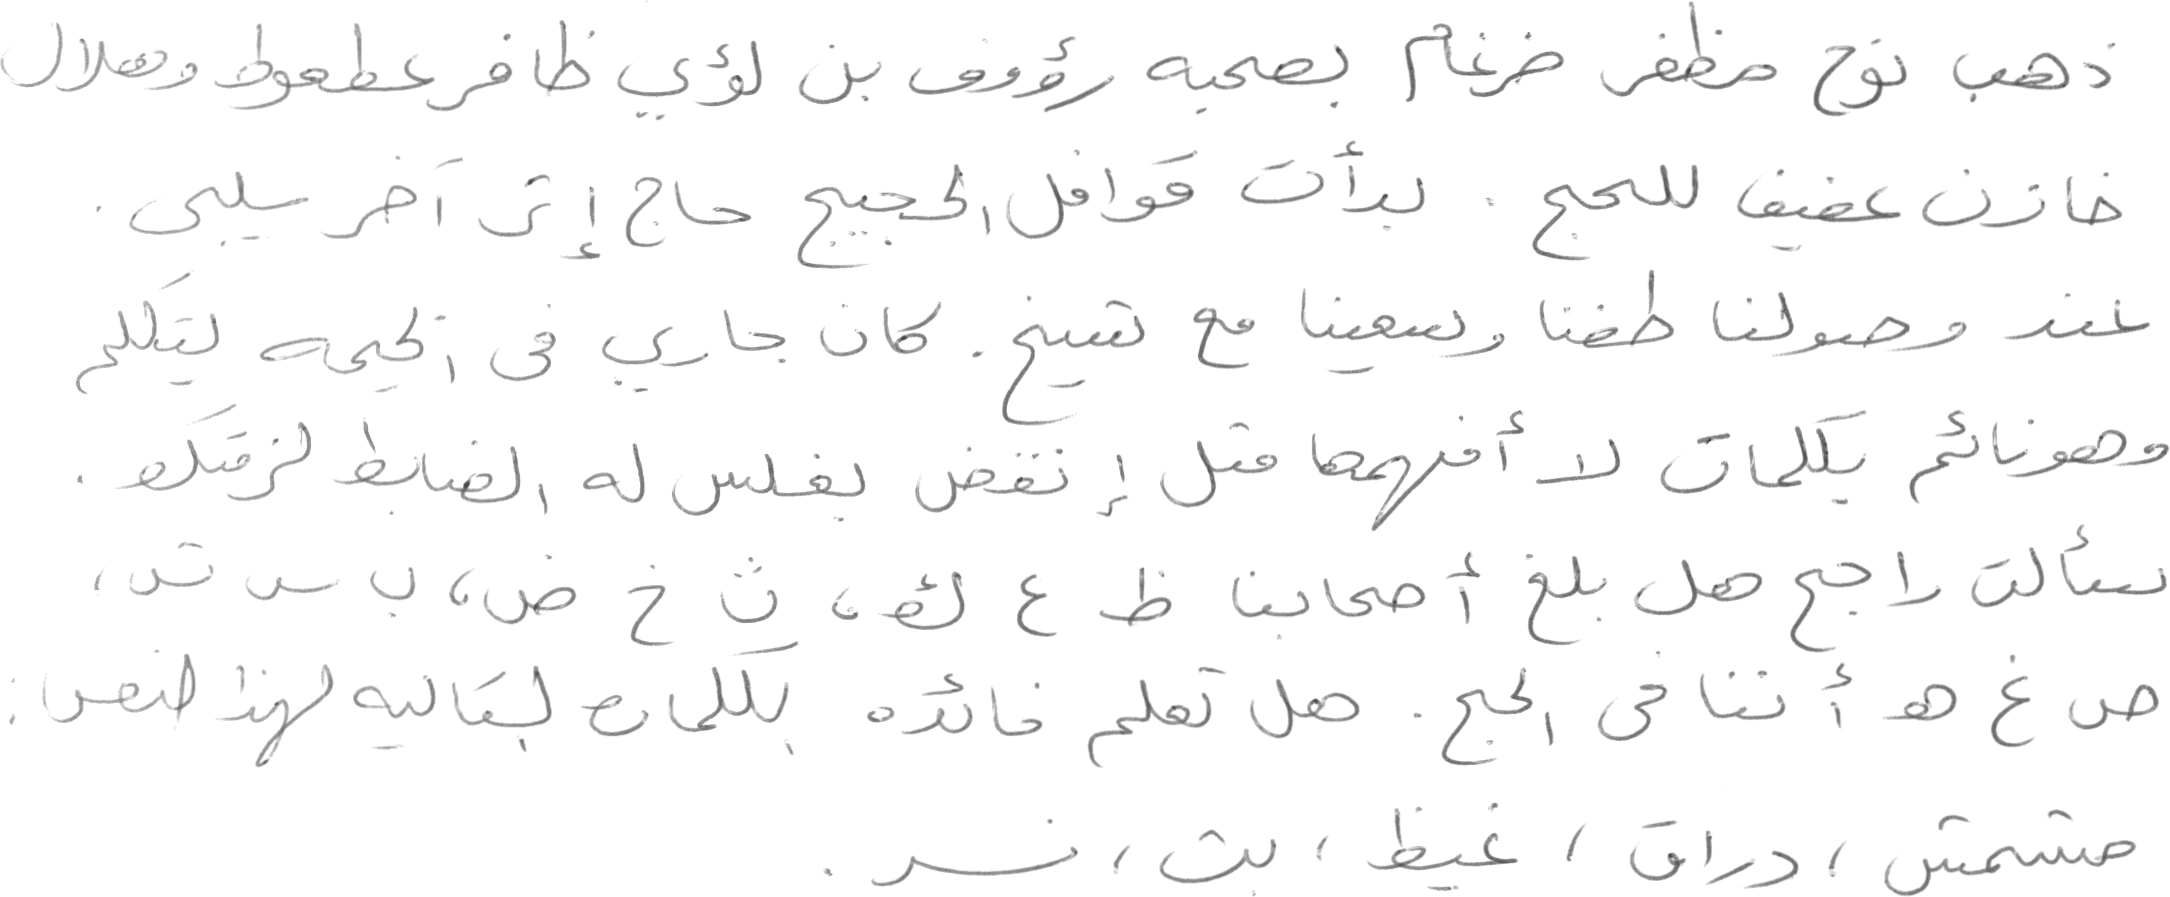 ذهب نوح مظفر ضرغام بصحبه رؤوف بن لؤي ظافر عطعوط وهلال
خازن عفيف للحج . بدأت قوافل الحجيج حاج إثر آخر سيلبى .
عند وصولنا طفنا وسعينا مع شيخ . كان جاري فى الخيمه ليتكلم
وهو نائم بكلمات لا أفهمها مثل إنقض بغلس له الضابط لزقتك .
سألت راجح هل بلغ أصحابنا ظ ع ك ، ث خ ض ، ب س ش ،
ص غ هـ أننا فى الحج . هل تعلم فائده الكلمات التاليه لهذا النص :
مشمش ، دراق ، غيظ ، بث ، نسر .